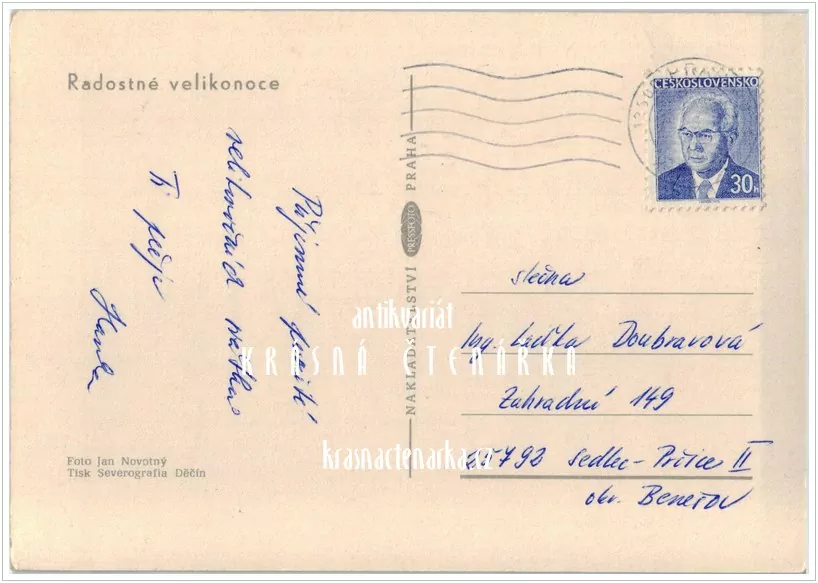 Radostné velikonoce
Příjemné prožití
velikonočních svátků
Ti přeje
Hanka
Foto Jan Novotný
Tisk Severografia Děčín
NAKLADATELSTVÍ PRESSFOTO PRAHA
ČESKOSLOVENSKO
30 H
slečna
Ing. Laďka Doubravová
Zahradní 149
257 92 Sedlec-Prčice II
okr. Benešov
antikvariát
KRÁSNÁ ČTENÁRKA
krasnactenarka.cz